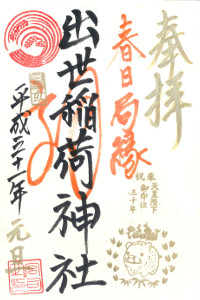 奉拝
春日局縁
出世稲荷神社
平成三十一年 元旦
奉祝
天皇陛下
御即位
三十年